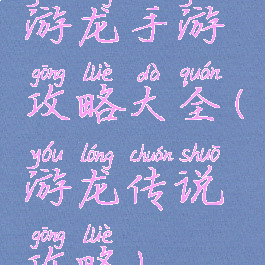 游龙手游
gōng lüè dà quán
攻略大全(
yóu lóng chuán shuō
游龙传说
gōng lüè
攻略)